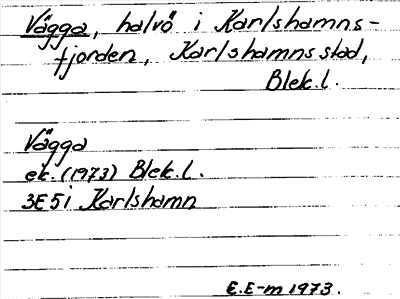 Vägga, halvö i Karlshamns-
fjorden, Karlshamns stad,
Blek.l.
Vägga
ek. (1973) Blek.l.
3E5i Karlshamn
E.E-m 1973.